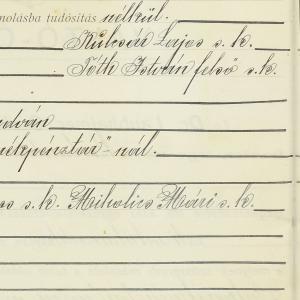 molásba tudósítás nélkül.
Kulcsár Lajos s. k.
Tóth István felső s. k.
udván
nékpénztár"-nál.
os s. k. Mikolics Mári s. k.